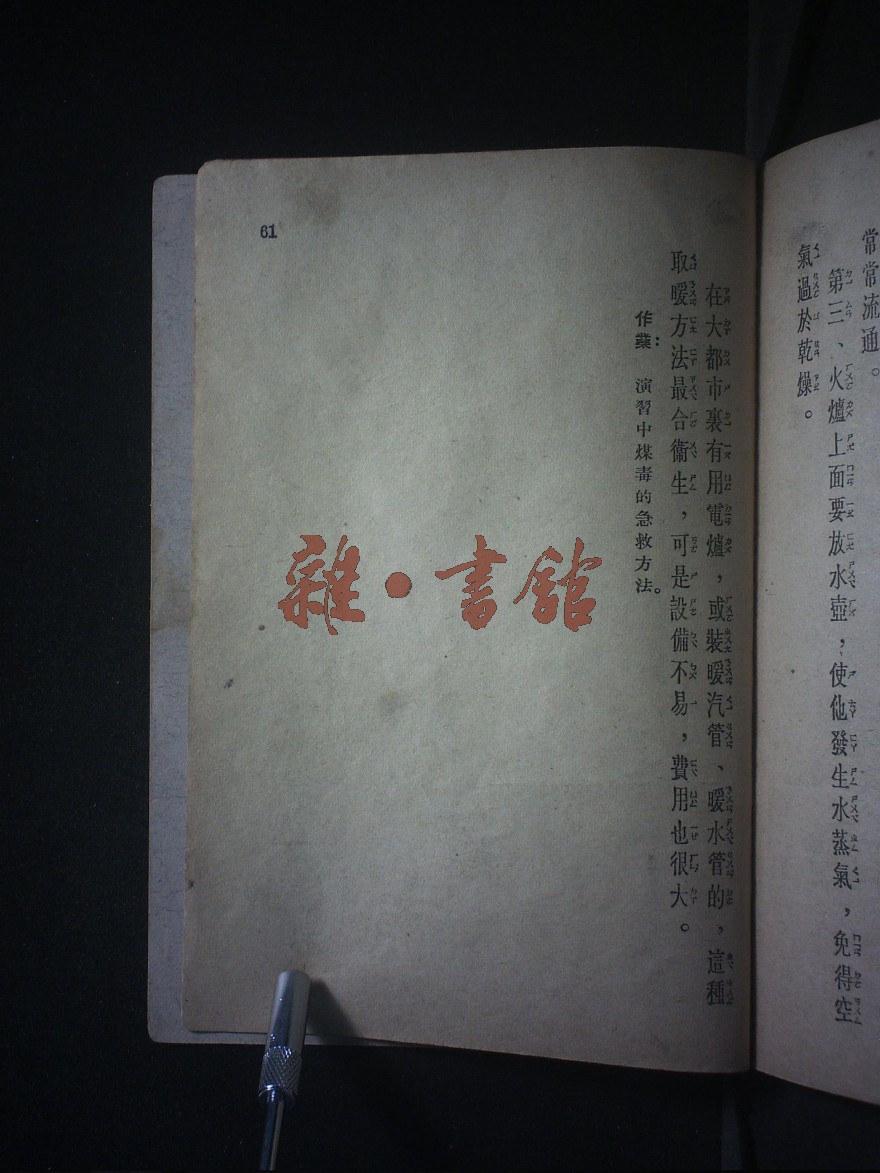 常常流通。
第三、火爐上面要放水壺，使他發生水蒸氣，免得空
氣過於乾燥。
在大都市裏有用電爐，或裝暖汽管、暖水管的，這種
取暖方法最合衞生，可是設備不易，費用也很大。
作業：　演習中煤毒的急救方法。
61
雜・書館